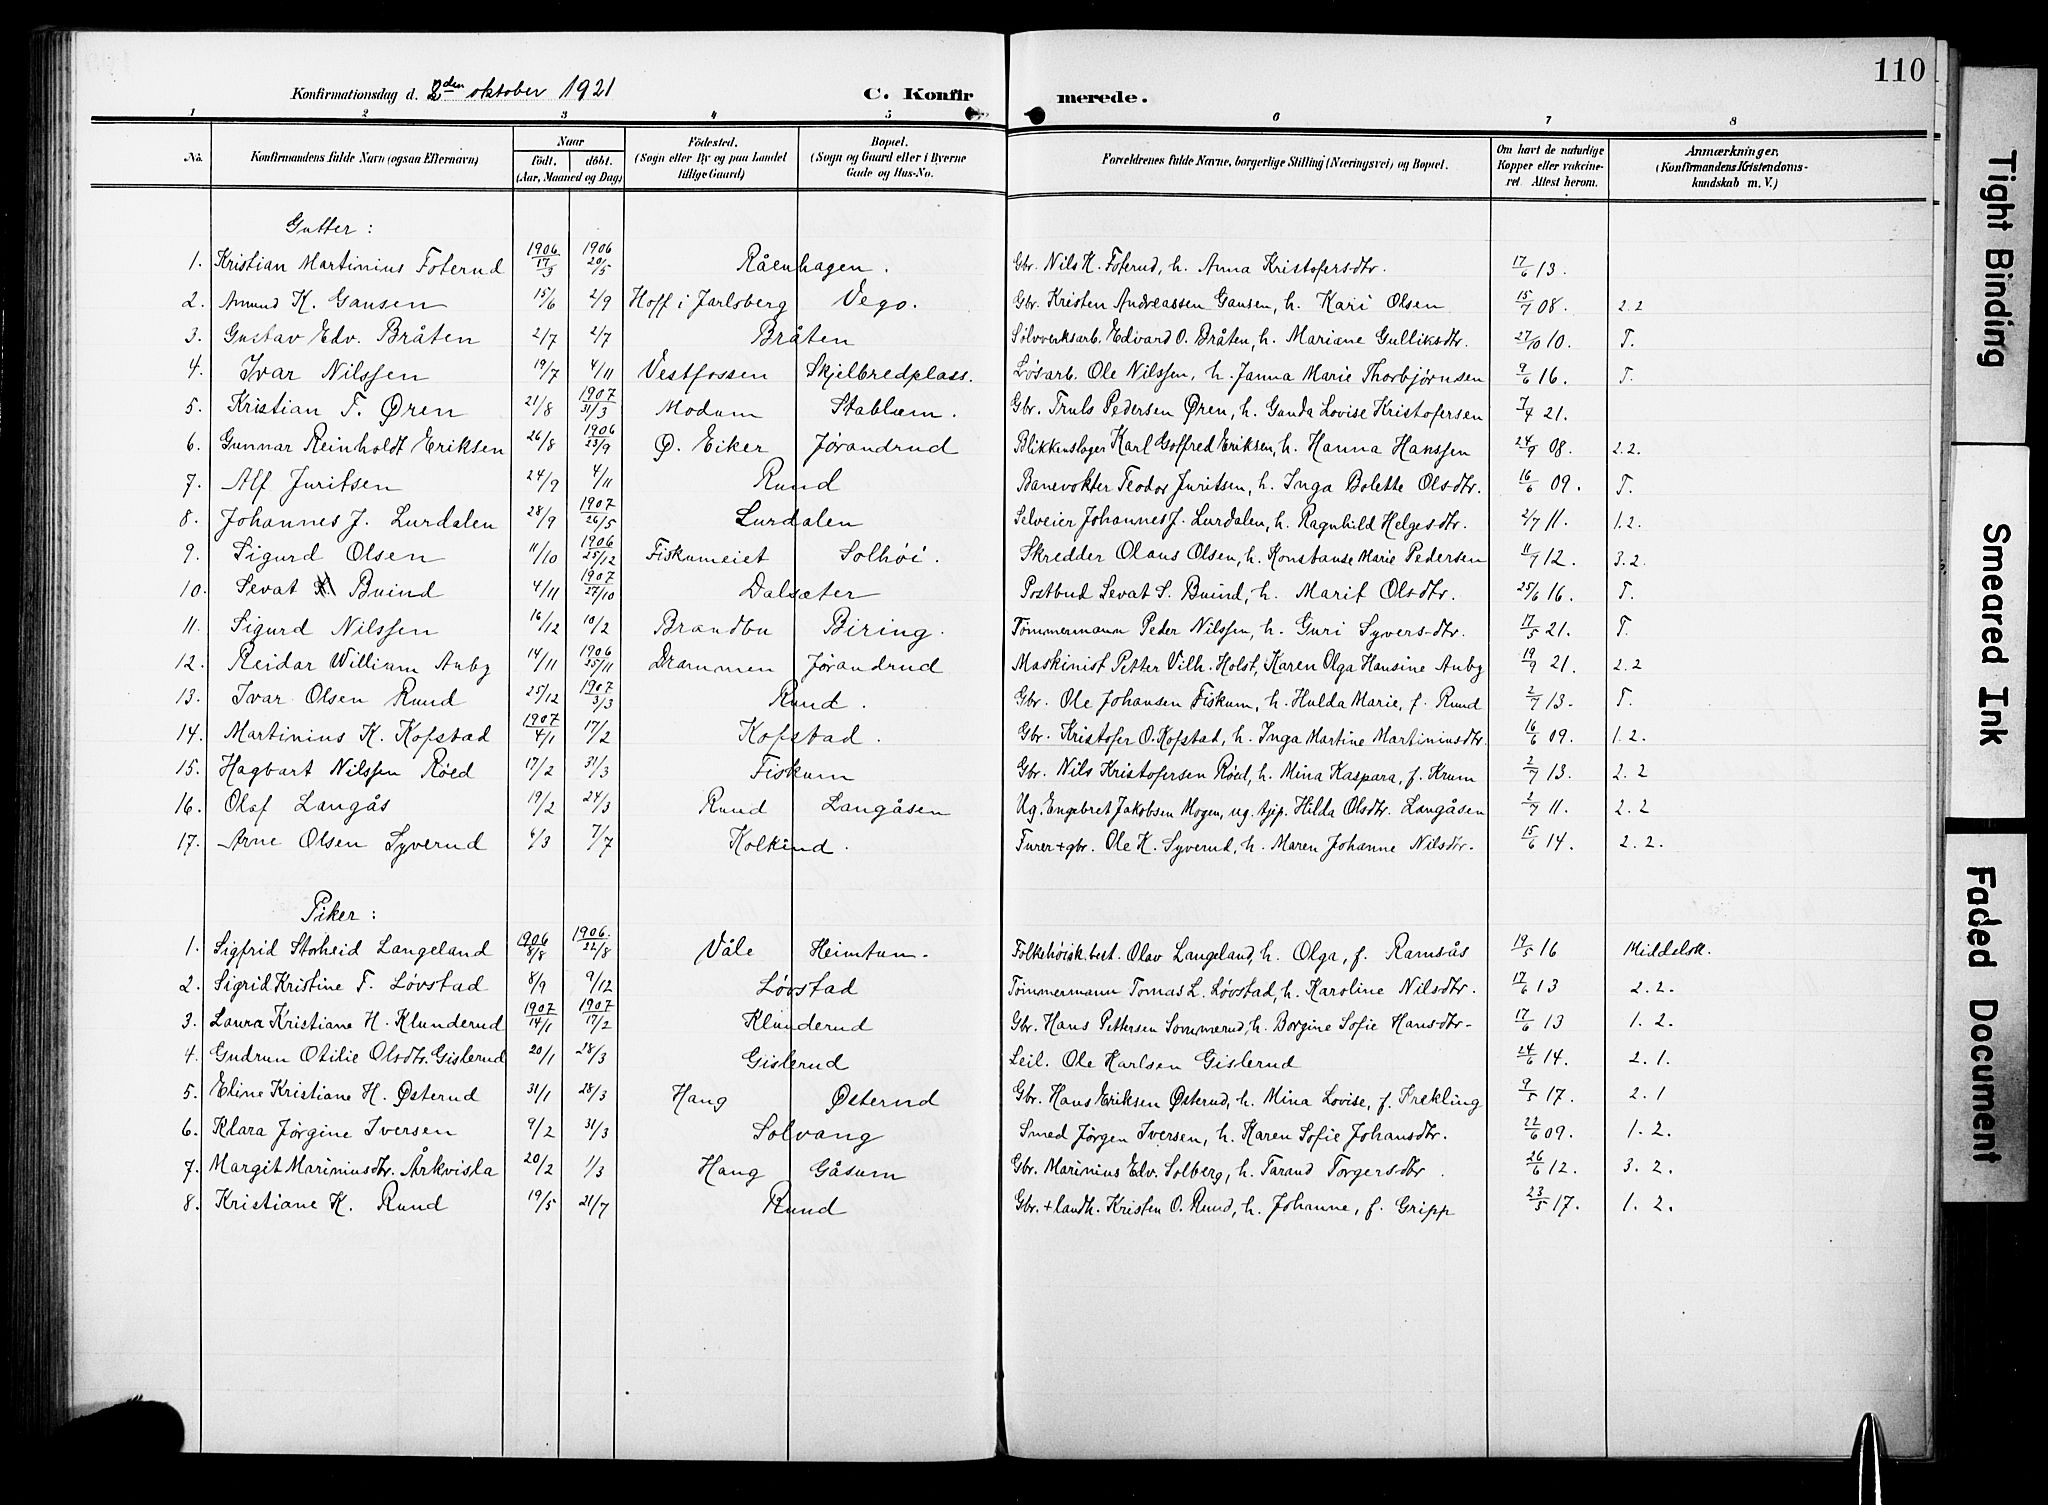 110
Konfirmationsdag d. 2den oktober 1921 C. Konfirmerede.
1 2 3 4 5 6 7 8
No. Konfirmandens fulde Navn (ogsaa Efternavn) Naar født. døbt. (Aar, Maaned og Dag) Fødested. (Sogn eller By og paa Landet tillige Gaard) Bopæl. (Sogn og Gaard eller i Byerne Gade og Hus-No. Forældrenes fulde Navne, borgerlige Stilling (Næringsvei) og Bopæl. Om havt de naturlige Kopper eller vakcineret. Attest herom. Anmærkninger. (Konfirmandens Kristendomskundskab m. V.)
Gutter:
1. Kristian Martinius Foterud 1906 17/3 1906 20/5 Råenhagen. Gbr. Nils K. Foterud, h. Anna Kristofersdtr. 17/6 13.
2. Amund K. Gausen 15/6 2/9 Hoff i Jarlsberg Vego. Gbr. Kristen Andreassen Gausen, h. Kari Olsen 15/7 08. 2.2
3. Gustav Edv. Bråten 2/7 2/7 Bråten Sølvverksarb. Edvard O. Bråten, h. Mariane Gulliksdtr. 27/10 10. T.
4. Ivar Nilssen 19/7 4/11 Vestfossen Skjelbredplass. Løsarb. Ole Nilssen, h. Janna Marie Thorbjørnsen 9/6 16. T.
5. Kristian T. Øren 21/8 1907 31/3 Modum Stablum. Gbr. Truls Pedersen Øren, h. Ganda Lovise Kristofersen 7/4 21.
6. Gunnar Reinholdt Eriksen 26/8 1906 23/9 Ø. Eiker Jørandrud Blikkenslager Karl Gotfred Eriksen, h. Hanna Hanssen 24/9 08. 2.2.
7. Alf Juritsen 24/9 4/11 Rund Banevokter Teodor Juritsen, h. Inga Bolette Olsdtr. 16/6 09. T.
8. Johannes J. Lurdalen 28/9 1907 26/5 Lurdalen Selveier Johannes J. Lurdalen, h. Ragnhild Helgesdtr. 2/7 11. 1.2.
9. Sigurd Olsen 11/10 1906 25/12 Fiskumeiet Solhøi. Skredder Olaus Olsen, h. Konstanse Marie Pedersen 11/7 12. 3.2.
10. Sevat Buind 4/11 1907 27/10 Dalsæter Postbud Sevat S. Buind, h. Marit Olsdtr. 25/6 16. T.
11. Sigurd Nilssen 16/12 10/2 Brandbu Biring. Tømmermann Peder Nilssen, h. Guri Syversdtr. 17/5 21. T.
12. Reidar William Auby 14/11 1906 25/11 Drammen Jørandrud Maskinist Petter Vilh. Holst, Karen Olga Hansine Auby 19/9 21. 2.2
13. Ivar Olsen Rund 25/12 1907 3/3 Rund. Gbr. Ole Johansen Fiskum, h. Hulda Marie, f. Rund 2/7 13. T.
14. Martinius K. Kofstad 1907 4/1 17/2 Kofstad. Gbr. Kristofer O. Kofstad, h. Inga Martine Martiniusdtr. 16/6 09. 1.2.
15. Hagbart Nilssen Røed 17/2 31/3 Fiskum Gbr. Nils Kristofersen Røed, h. Mina Kaspara, f. Krum 2/7 13. 2.2
16. Olaf Langås 19/2 24/3 Rund Langåsen Ug. Engebret Jakobsen Mogen, ug. tjp. Hilda Olsdtr. Langåsen 2/7 11. 2.2
17. Arne Olsen Syverud 4/3 7/7 Kolkind. Furer + gbr. Ole K. Syverud, h. Maren Johanne Nilsdtr. 15/6 14. 2.2.
Piker:
1. Sigfrid Storheid Langeland 1906 8/8 1906. 22/8 Våle Heimtun. Folkehøisk.best. Olav Langeland, h. Olga, f. Ramsås 19/5 16 Middelsk.
2. Sigrid Kristine T. Løvstad 8/9 9/12 Løvstad Tømmermann Tomas L. Løvstad, h. Karoline Nilsdtr. 17/6 13 2.2.
3. Laura Kristiane H. Klunderud 1907 14/1 1907 17/2 Klunderud Gbr. Hans Pettersen Sommerud, h. Borgine Sofie Hansdtr. 17/6 13 1.2.
4. Gudrun Otilie Olsdtr. Gislerud 20/1 28/3 Gislerud Leil. Ole Karlsen Gislerud 24/6 14. 2.1.
5. Eline Kristiane H. Østerud 31/1 28/3 Haug Østerud Gbr. Hans Eriksen Østerud, h. Mina Lovise, f. Krekling 9/5 17. 2.1
6. Klara Jørgine Iversen 9/2 31/3 Solvang Smed Jørgen Iversen, h. Karen Sofie Johansdtr. 22/6 09. 1.2.
7. Margit Marniusdtr. Årkvisla 20/2 1/3 Haug Gåsum Gbr. Marinius Edv. Solberg, h. Tarand Torgersdtr. 26/6 12. 3.2.
8. Kristiane K. Rund 19/5 21/7 Rund Gbr. + landh. Kristen O. Rund, h. Johanne, f. Gripp 23/5 17. 1.2.
Tight Binding
Smeared Ink
Faded Document